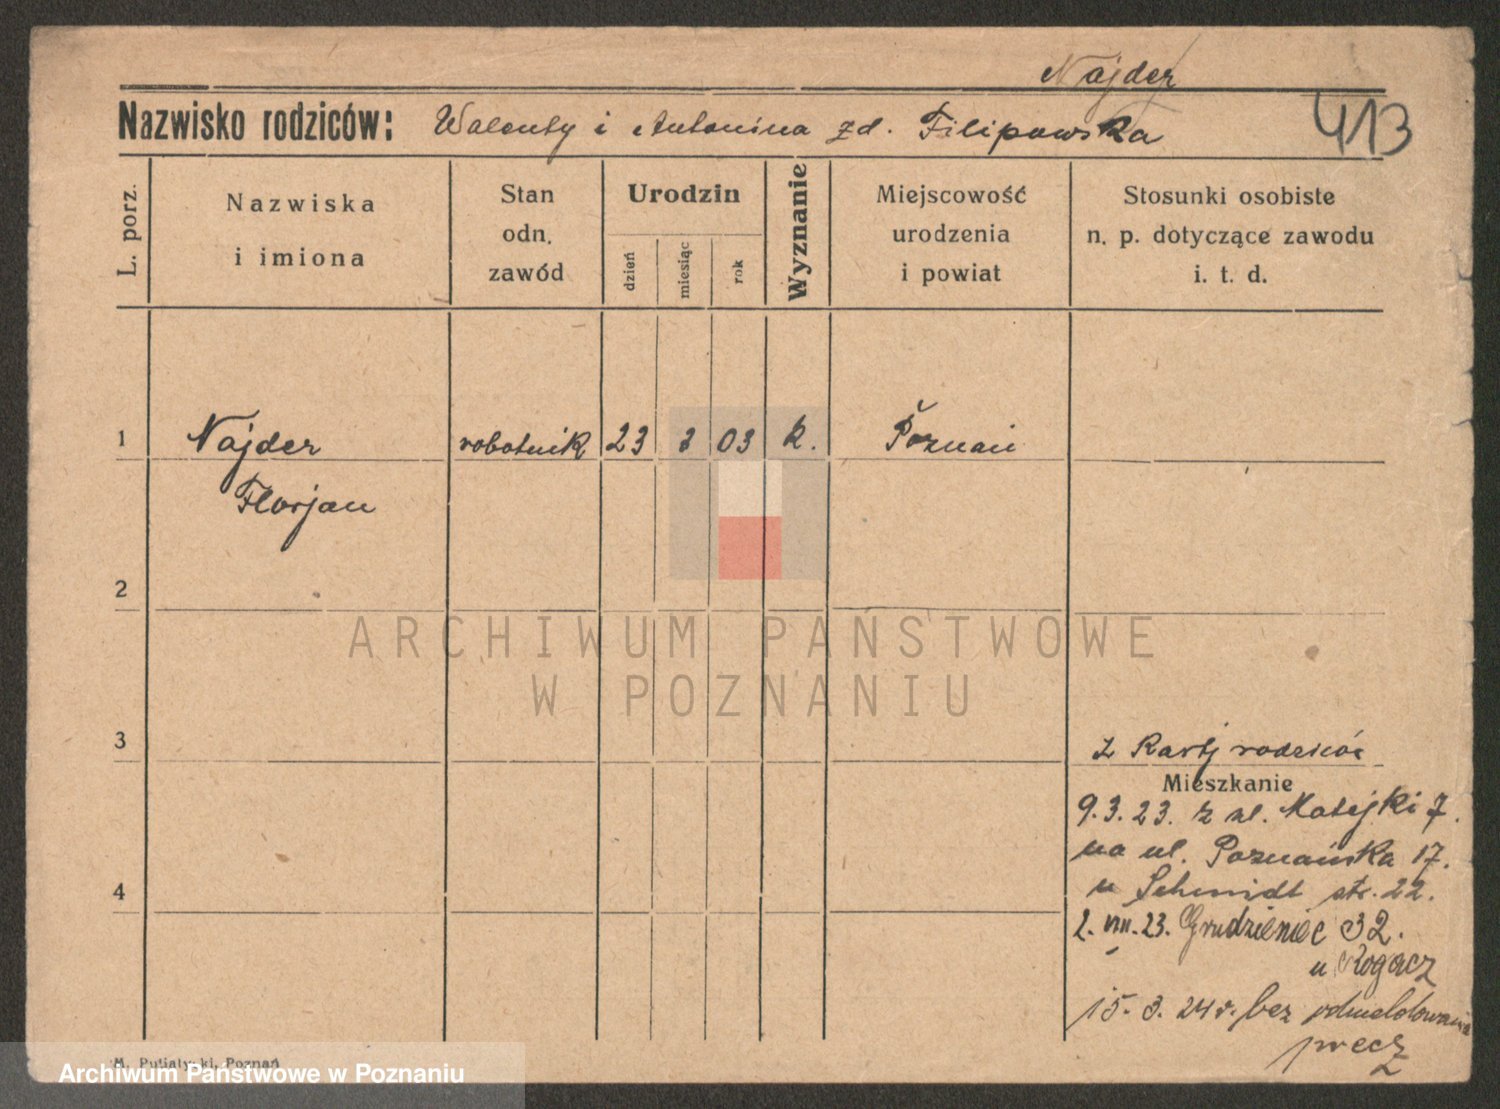 Najder
Nazwisko rodziców: Walenty i Antonina zd. Filipowska
413
L. porz.
Nazwiska
i imiona
Stan
odn.
zawód
Urodzin
dzień
miesiąc
rok
Wyznanie
Miejscowość
urodzenia
i powiat
Stosunki osobiste
n. p. dotyczące zawodu
i. t. d.
1 Najder robotnik 23 03 k. Poznań
Florjan
2
ARCHIWUM PAŃSTWOWE
W POZNANIU
3
z Karty rodziców
Mieszkanie
9.3.23. z ul. Matejki 7.
na ul. Poznańska 17.
u Schmidt str. 22.
2. VIII. 23. Grudzieniec 32.
u Rogacz
4
15. 3. 24 r. bez odmeldowania
precz
M. Putiatycki, Poznań
Archiwum Państwowe w Poznaniu